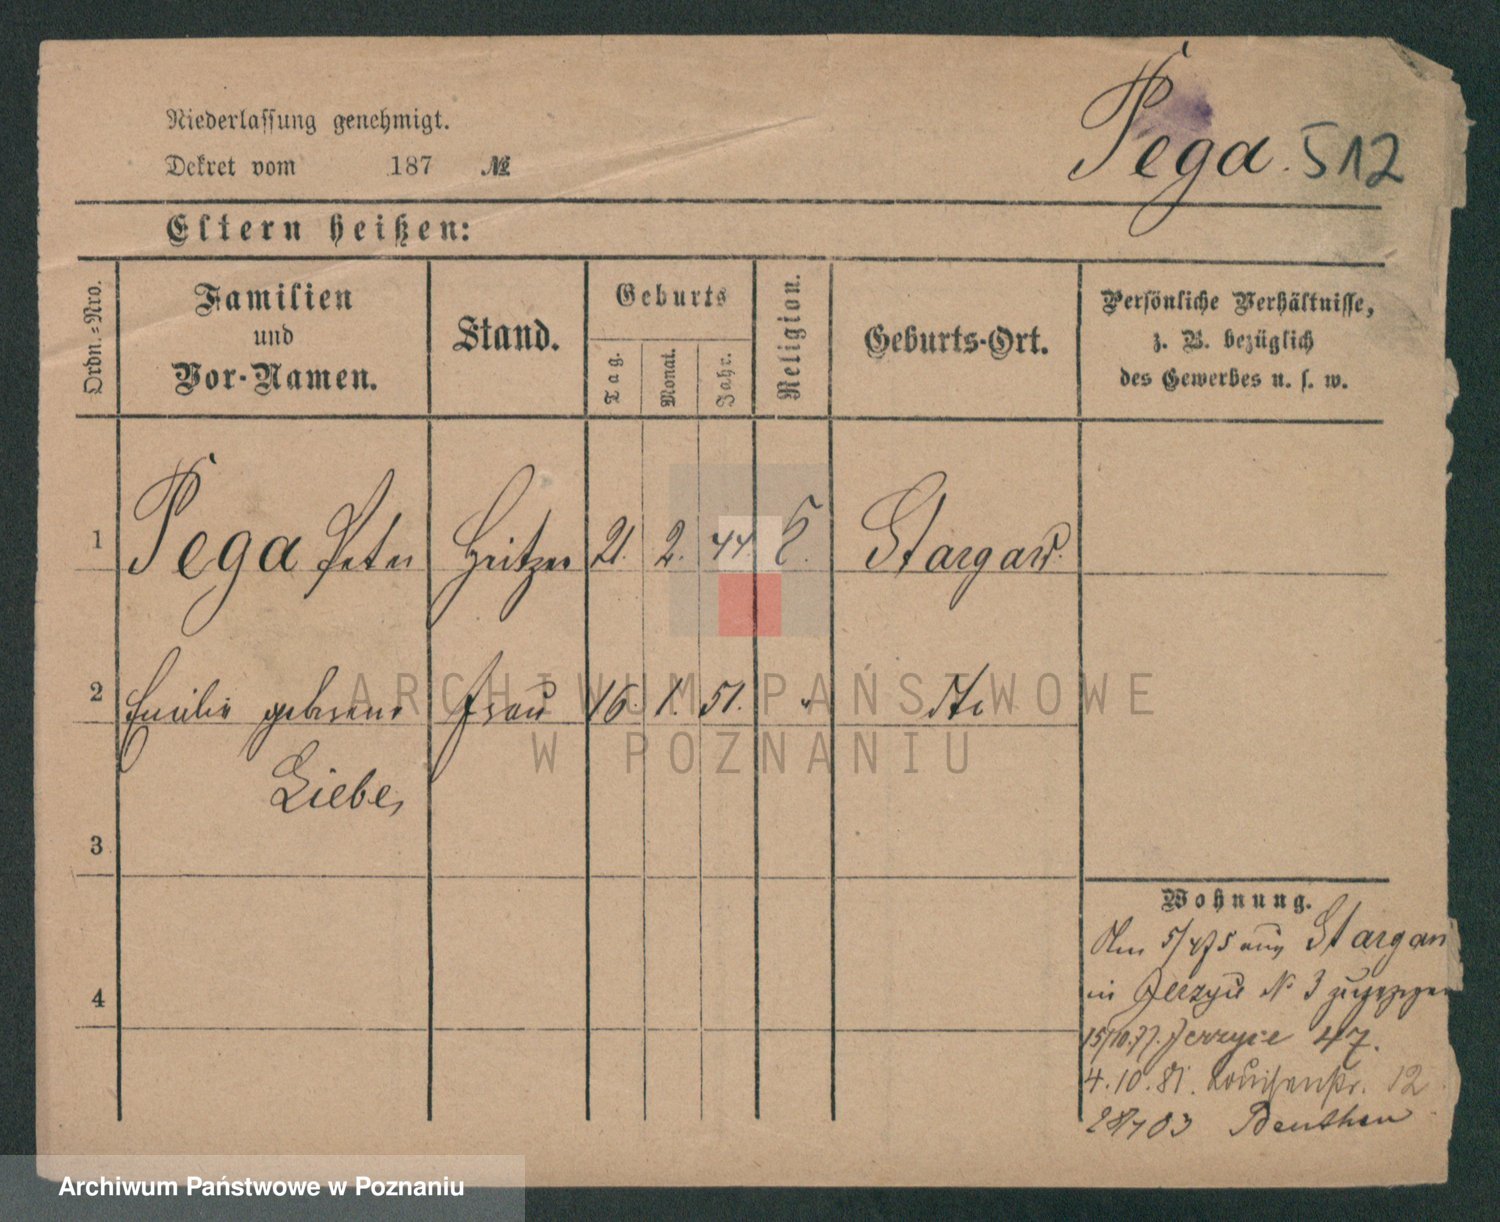 Niederlassung genehmigt.
Dekret vom 187 №
Pega. 512
Eltern heißen:
Ordn.-Nro.
Familien
und
Vor-Namen.
Stand.
Geburts
Tag.
Monat.
Jahr.
Religion.
Geburts-Ort.
Persönliche Verhältnisse,
z. B. bezüglich
des Gewerbes u. s. w.
1 Pega Peter Heitzer 21. 2. 44 K. Stargard.
2 Emilie geborene Frau 16. 1. 51. " dto
Liebe,
3
4
Wohnung.
Am 5/4 75 aus Stargard
in Jerzyce N° 3 zugezogen
15/10.77. Jerzyce 47.
4.10.81. Louisenstr. 12
Beuthen
ARCHIWUM PAŃSTWOWE
W POZNANIU
Archiwum Państwowe w Poznaniu